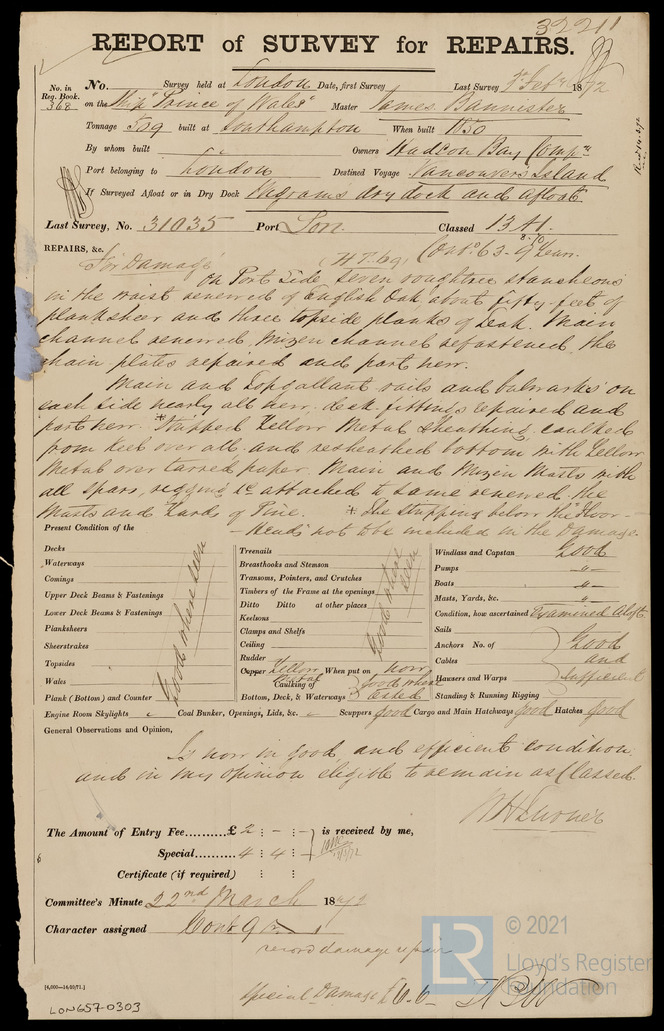 32211
REPORT of SURVEY for REPAIRS.
No. in Reg. Book. 368
No. Survey held at London Date, first Survey Last Survey 1872
on the Ship "Prince of Wales" Master James Bannister
Tonnage 509 built at Southampton When built 1850
By whom built Owners Hudson Bay Comp
Port belonging to London Destined Voyage Vancouvers Island
If Surveyed Afloat or in Dry Dock Wigrams dry dock and afloat
Last Survey, No. 31035 Port Lon Classed 13 A1.
REPAIRS, &c. Cont 63. 9 Years.
For Damage
On Port Side, Seven roughtree Stancheons
in the waist renewed of English Oak, about fifty feet of
planksheer and three topside planks of Teak. Main
channel renewed, Mizen channel refastened, the
chain plates repaired and part new.
Main and Topgallant rails and bulwarks on
each side nearly all new. deck fittings repaired and
part new. * Stripped Yellow Metal Sheathing, caulked
from Keel over all, and resheathed bottom with Yellow
Metal over tarred paper. Main and Mizen Masts with
all spars, rigging &c attached to same renewed. the
Masts and Yards of Pine. * The Stripping below the Floor
Heads not to be included in the Damage.
Present Condition of the
Decks
Waterways
Comings
Upper Deck Beams & Fastenings
Lower Deck Beams & Fastenings
Planksheers
Sheerstrakes
Topsides
Wales
Plank (Bottom) and Counter
Good where seen
Treenails
Breasthooks and Stemson
Transoms, Pointers, and Crutches
Timbers of the Frame at the openings
Ditto Ditto at other places
Keelsons
Clamps and Shelfs
Ceiling
Rudder
Good where seen
Copper Yellow Metal When put on now
Caulking of Bottom, Deck, & Waterways Good where tested
Windlass and Capstan Good
Pumps "
Boats "
Masts, Yards, &c. "
Condition, how ascertained Examined Aloft
Sails
Anchors No. of
Cables
Hawsers and Warps
Standing & Running Rigging
Good and sufficient
Engine Room Skylights Coal Bunker, Openings, Lids, &c. Scuppers good Cargo and Main Hatchways good Hatches good
General Observations and Opinion,
Is now in good and efficient condition
and in my opinion eligible to remain as Classed.
The Amount of Entry Fee.......... £ 2 : - : - is received by me,
Special.......... 4 : 4 : -
Certificate (if required) : :
Committee's Minute 22nd March 1872
Character assigned Cont 9
record damage repair
© 2021
LR
Lloyd's Register
Foundation
Special Damage £6.6
[4,000—14/10/71.]
LON657-0303